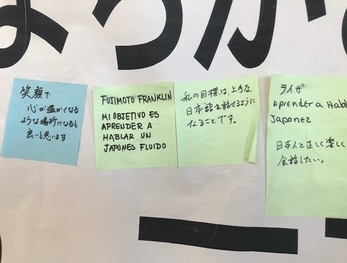 ようか
笑顔で
心が温かくなる
ような場所になると
良いと思います
FUJIMOTO FRANKLIN
MI OBJETIVO ES
APRENDER A
HABLAR UN
JAPONES FLUIDO
私の目標は、上手な
日本語を話せるように
なることです。
ライガ
Aprender a Habl
Japonez
日本人と正しく楽しく
会話したい。